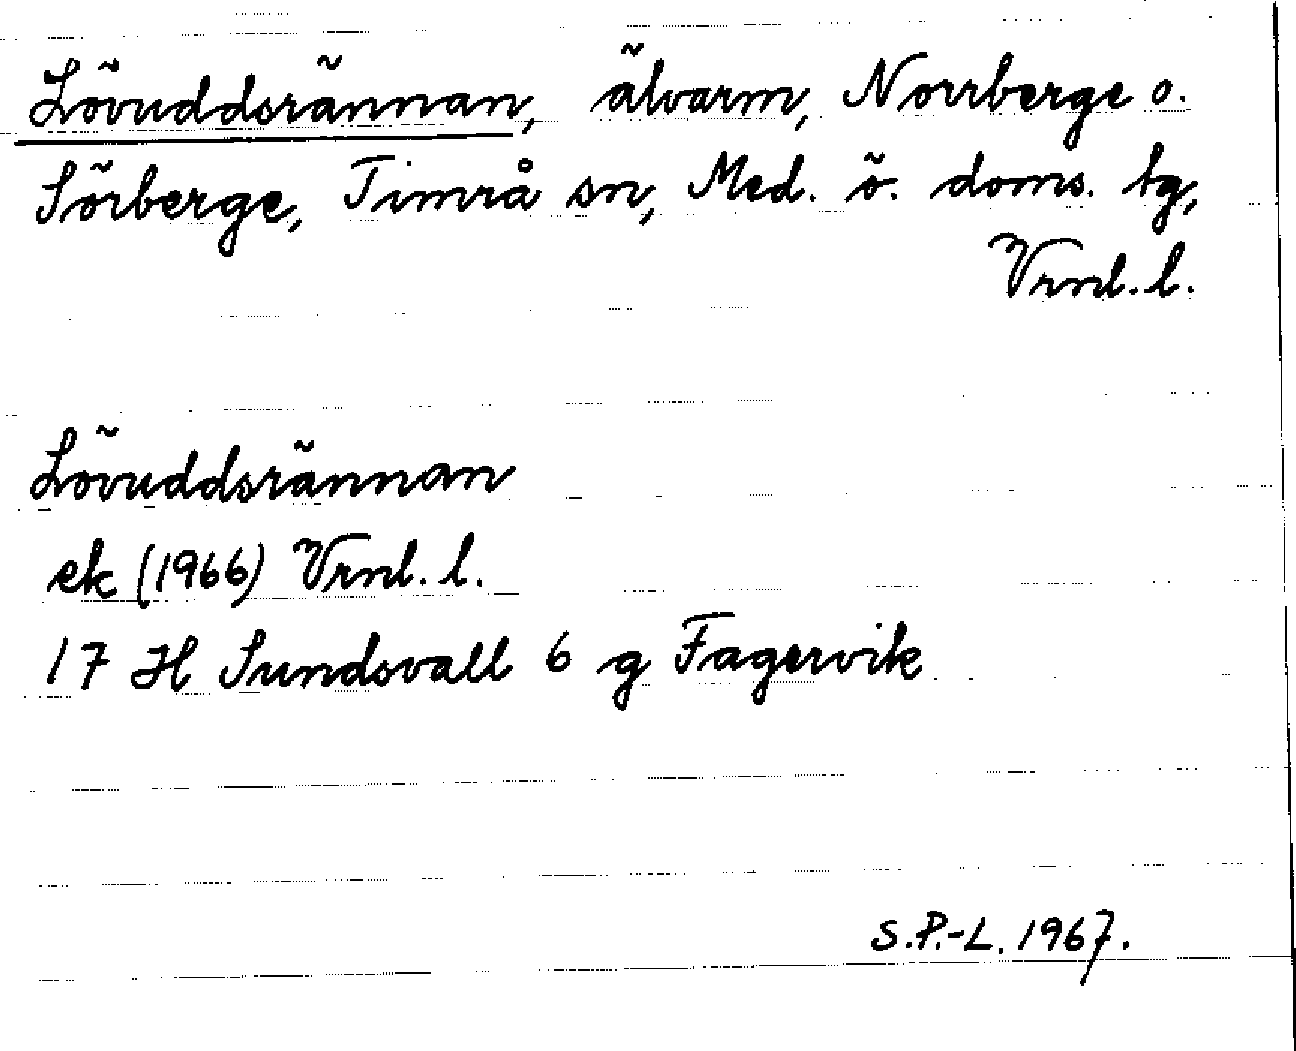 Lövuddsrännan, älvarm, Norrberge o.
Sörberge, Timrå sn, Med. ö. doms. tg,
Vrnl. l.
Lövuddsrännan
ek (1966) Vrnl. l.
17 H Sundsvall 6 g Fagervik
S.P.-L. 1967.